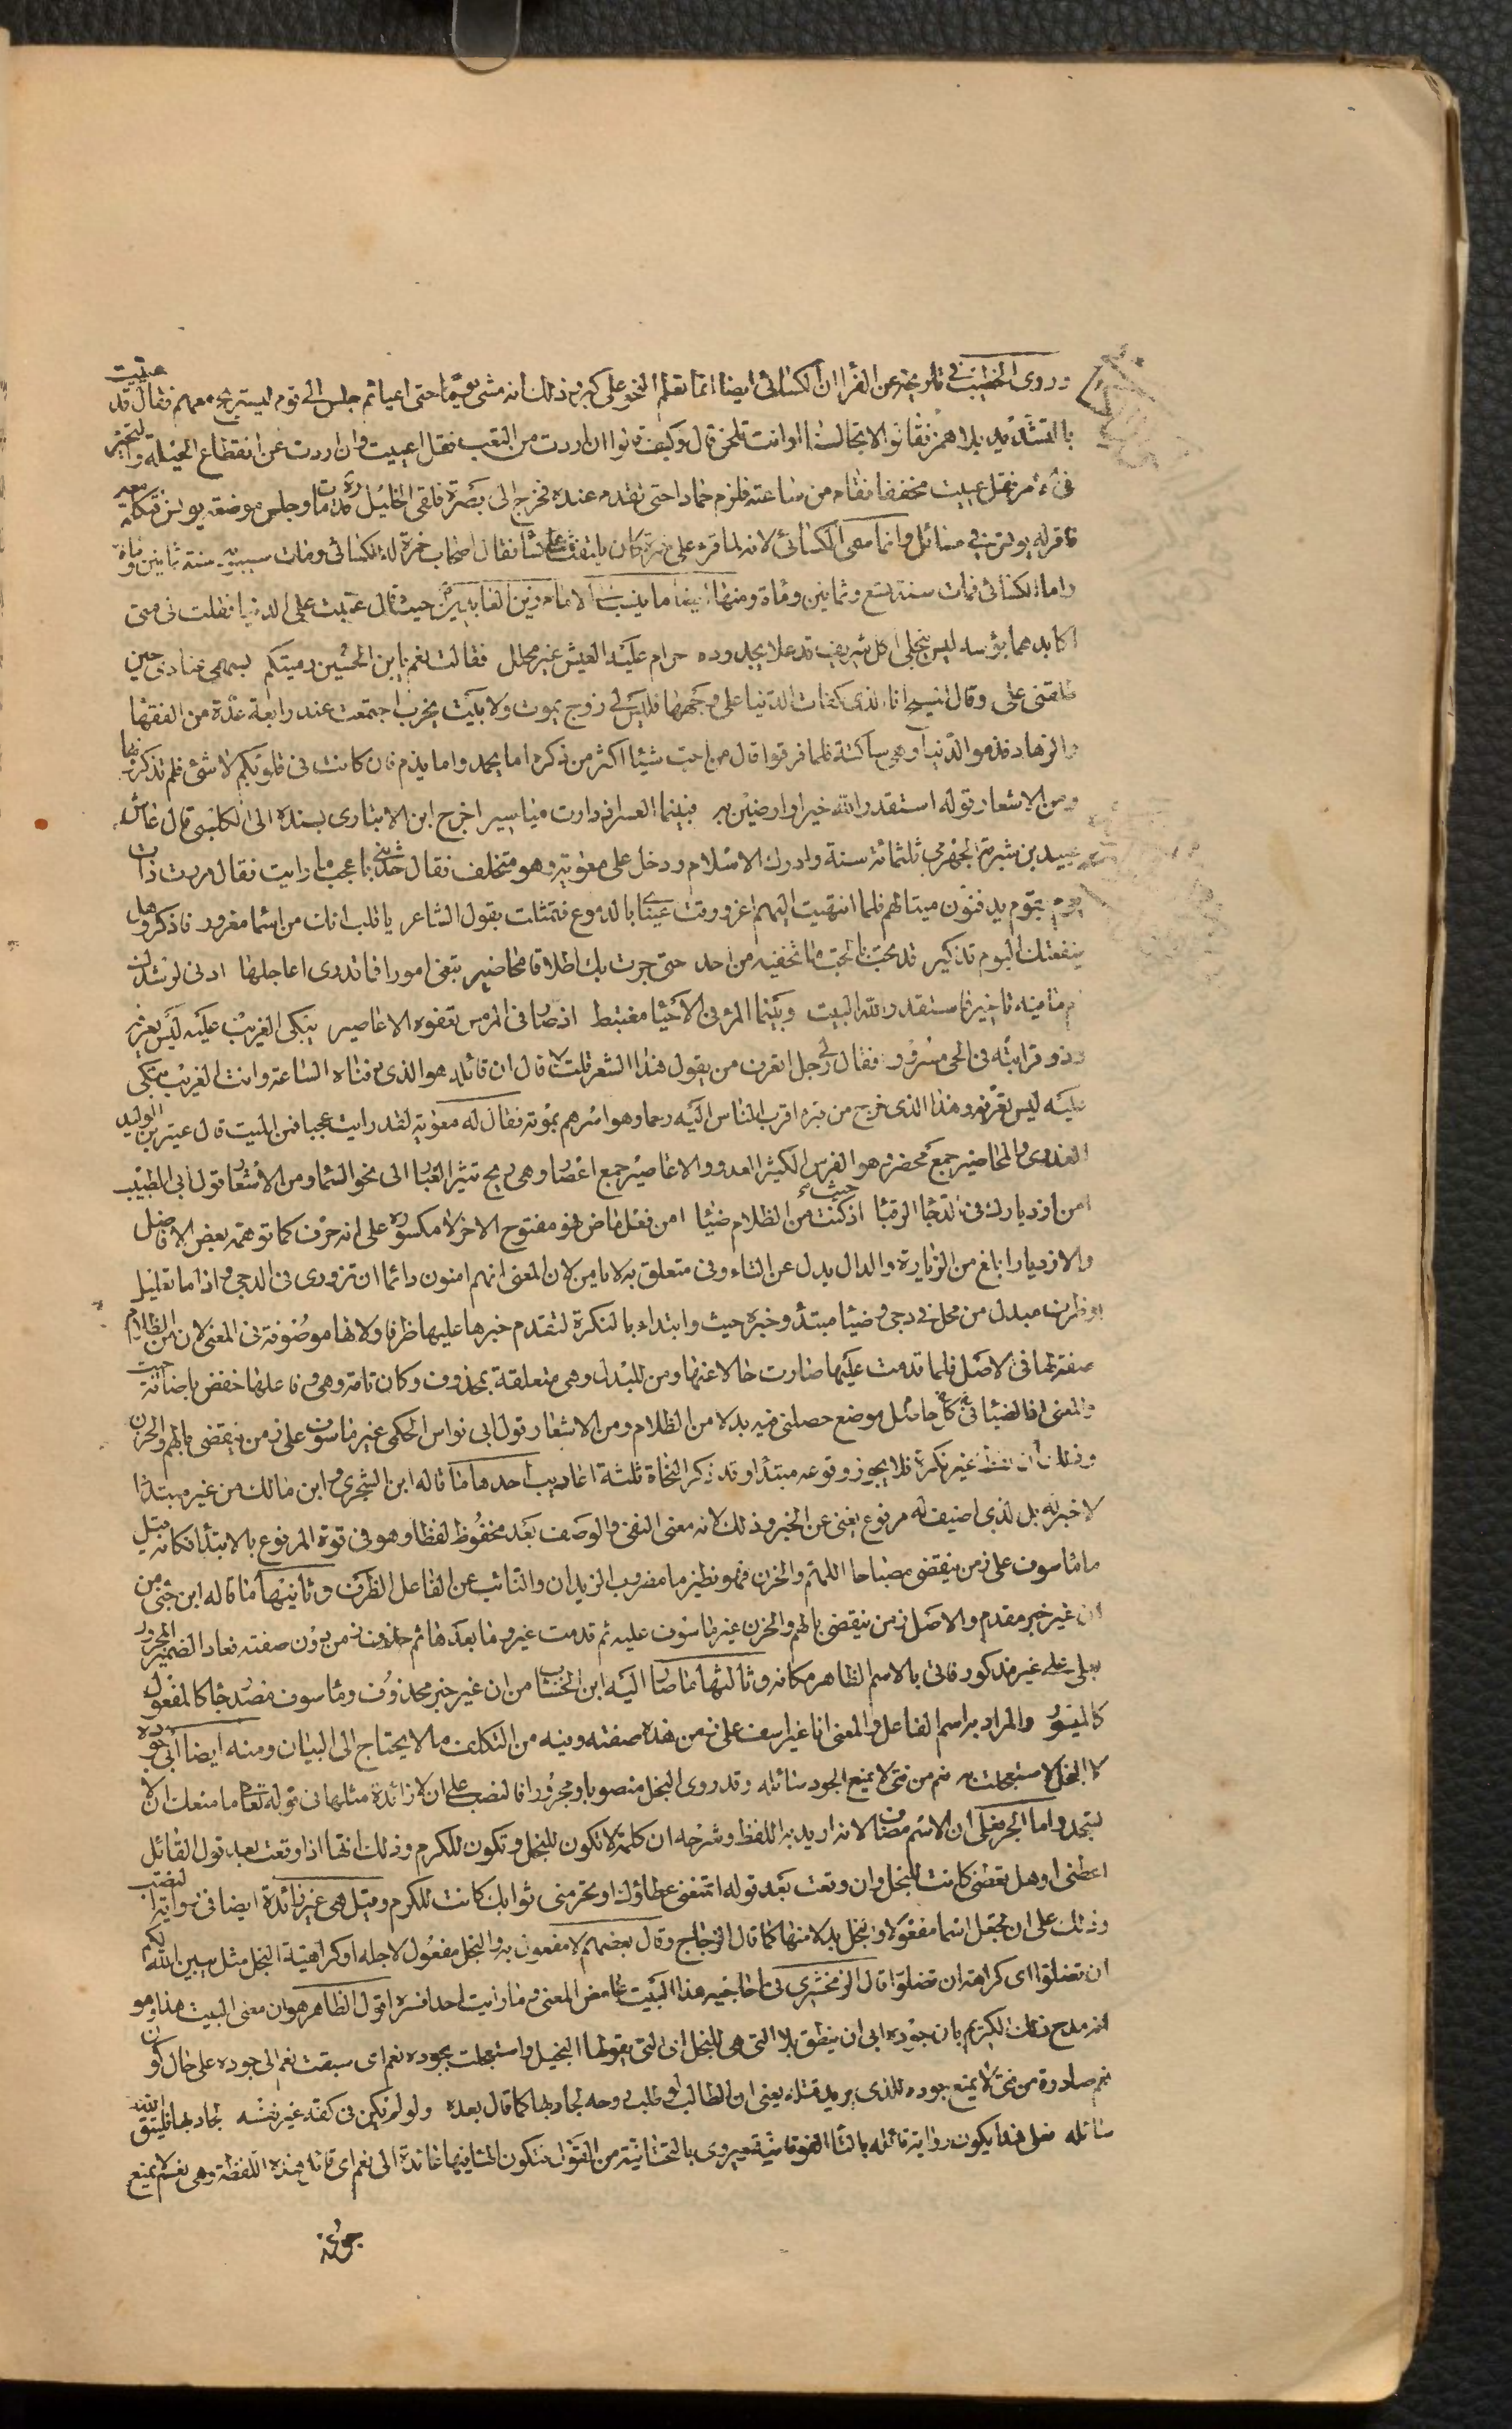 وروى الخطيب في تاريخه عن الفرا ان الكسائى ايضا انما تعلم النحو على كبر وذلك انه مشى يوما حتى اعيا ثم جلس الى قوم ليستريح معهم فقال قد عييت
بالتشديد بلا همز فقالوا لا تجالسنا وانت تلحن قال وكيف قالوا ان اردت من التعب فقل اعييت وان اردت من انقطاع الحيلة والتحير
فى الامر فقل عييت مخففا فقام من ساعته فلزم حمادا حتى نفد ما عنده فخرج الى بصرة فلقى الخليل قد مات وجلس موضعه يونس فتكلم معه
فاقر له يونس فى مسائل وانما سمى الكسائى لانه لما قرء على حمزة كان يلتف كسا فقال اصحاب حمزة له الكسائى ومات سيبويه سنة ثمانين وماة
واما الكسائى فمات سنة تسع وثمانين وماة ومنها ايضا ما ينسب الى الامام زين العابدين حيث قال عتبت على الدنيا فقلت الى متى
اكابد هما بؤسه ليس ينجلى اكل شريف قد علا بجدوده حرام عليه العيش غير محلل فقالت نعم يابن الحسين رميتكم بسهمى عنادى حين
طلقنى على وقال المسيح انا الذى كفات الدنيا على وجهها فليس لى زوج يموت ولا بيت يخرب اجتمعت عند رابعة عدة من الفقها
والزهاد فذموا الدنيا وهى ساكتة فلما فرغوا قال من احب شيئا اكثر من ذكره اما بحمد واما بذم فان كانت فى قلوبكم لا شئ فلم تذكرونها
ومن الاشعار قوله استقدر الله خيرا وارضين به فبينما العسر اذ دارت مياسير اخرج ابن الانبارى بسنده الى الكلبى قال عاش
عبيد بن شرية الجرهمى ثلثمائة سنة وادرك الاسلام ودخل على معوية وهو متخلف فقال حدثنى باعجب ما رايت فقال مررت ذات
يوم بقوم يدفنون ميتا لهم فلما انتهيت اليهم اغرورقت عيناى بالدموع فتمثلت بقول الشاعر يا قلب انك من اسما مغرور فاذكر وهل
ينفعنك اليوم تذكير قد بحت بالحب ما تخفيه من احد حتى جرت بك اطلاقا محاضير تبغى امورا فما تدرى اعاجلها ادنى لرشدك
ام ما فيه تاخير فاستقدر الله البيت وبينما المرء فى الاحيا مغتبط اذ صار فى الرمس تعفوه الاعاصير يبكى الغريب عليه ليس يعرفه
وذو قرابته فى الحى مسرور فقال لى رجل اتعرف من يقول هذا الشعر قلت لا قال ان قائله هو الذى دفناه الساعة وانت الغريب تبكى
عليه ليس تعرفه وهذا الذى خرج من قبره اقرب الناس اليه رحما وهو اسرهم بموته فقال له معوية لقد رايت عجبا فمن الميت قال عثير بن الوليد
العذرى والمحاضير جمع محضر وهو الفرس الكثير العدو والاعاصير جمع اعصار وهى ريح تثير الغبار الى نحو السما ومن الاشعار قول ابى الطيب
امن ازديارك فى الدجا الرقبا اذ حيث كنت من الظلام ضيا امن فعل ماض فهو مفتوح الاخر لا مكسوره على انه حرف كما توهمه بعض الافاضل
والازديار ابلغ من الزيارة والدال بدل عن التاء وفى متعلق به لا بامن لان المعنى انهم امنون دائما ان تزورى فى الدجى واذ اما تعليل
او ظرف مبدل من محل فى دجى وضيا مبتدأ وخبره حيث وابتداء بالنكرة لتقدم خبرها عليها ظرفا ولانها موصوفة فى المعنى لان من الظلام
صفة لها فى الاصل فلما قدمت عليها صارت حالا عنها ومن للبدل وهى متعلقة بمحذوف وكان تامة وهى وفاعلها خفض باضافة حيث
والمعنى اذ الضيا فى كل موضع حصلتى فيه بدلا من الظلام ومن الاشعار قول ابى نواس الحكمى غير ماسوف على زمن ينقضى بالهم والحزن
وذلك ان لفظ غير نكرة فلا يجوز وقوعه مبتدأ وقد ذكر النحاة ثلثة اعاريب احدها ما قاله ابن الشجرى وابن مالك من غير مبتدا
لا خبر له بل لذى اضيف له مرفوع يغنى عن الخبر وذلك لانه معنى النفى والوصف بعد مخفوظ لفظا وهو فى قوة المرفوع بالابتدأ فكانه قيل
ما ماسوف على زمن ينقضى مصاحبا للهم والحزن فهو نظير ما مضروب الزيدان والنائب عن الفاعل الظرف وثانيها ما قاله ابن جنى من
ان غير خبر مقدم والاصل زمن ينقضى بالهم والحزن غير ماسوف عليه ثم قدمت غير وما بعدها ثم حذف زمن دون صفته فعاد الضمير المجرور
بعلى على غير مذكور فاتى بالاسم الظاهر مكانه وثالثها ما صار اليه ابن الخشاب من ان غير خبر محذوف وماسوف مصدر جا كالمفعول
كالميسور والمراد به اسم الفاعل والمعنى انا غير اسف على زمن هذه صفته وفيه من التكلف ما لا يحتاج الى البيان ومنه ايضا ابى جوده
لا البخل واستعجلت به نعم من فتى لا يمنع الجود سائله وقد روى البخل منصوبا ومجرورا فالنصب على ان لا زائدة مثلها فى قوله تعالى ما منعك ان لا
تسجد واما الجر فعلى ان لا اسم مضاف لانه اريد به اللفظ وشرحه ان كلمة لا تكون للبخل وتكون للكرم وذلك انها اذا وقعت بعد قول القائل
اعطنى او هل تعطنى كانت للبخل وان وقعت بعد قوله اتمنعنى عطاؤك او تحرمنى ثوابك كانت للكرم وقيل هى غير زائدة ايضا فى رواية النصب
وذلك على ان تجعل اسما مفعولا والبخل بدلا منها كما قال الزجاج وقال بعضهم لا مفعول به والبخل مفعول لاجله او كراهية البخل مثل يبين الله لكم
ان تضلوا اى كراهة ان تضلوا قال الزمخشرى فى احاجيه هذا البيت غامض المعنى وما رايت احدا فسره اقول الظاهر هو ان معنى البيت هذا وهو
انه مدح ذلك الكريم بان جوده ابى ان ينطق بلا التى هى للبخل اى التى يقولها البخيل واستعجلت بجوده نعم اى سبقت نعم الى جوده على حال كون
نعم صادرة من فتى لا يمنع جوده للذى يريد قتله يعنى ان الطالب لو طلب روحه لجاد بها كما قال بعده ولو لم يكن فى كفه غير نفسه لجاد بها فليتق الله
سائله فعلى هذا يكون رواية قاتله بالتا الفوقانية ويروى بالتحتانية من القول فتكون الها فيها عائدة الى نعم اى قائل هذه اللفظة وهى نعم لا يمنع
جوده